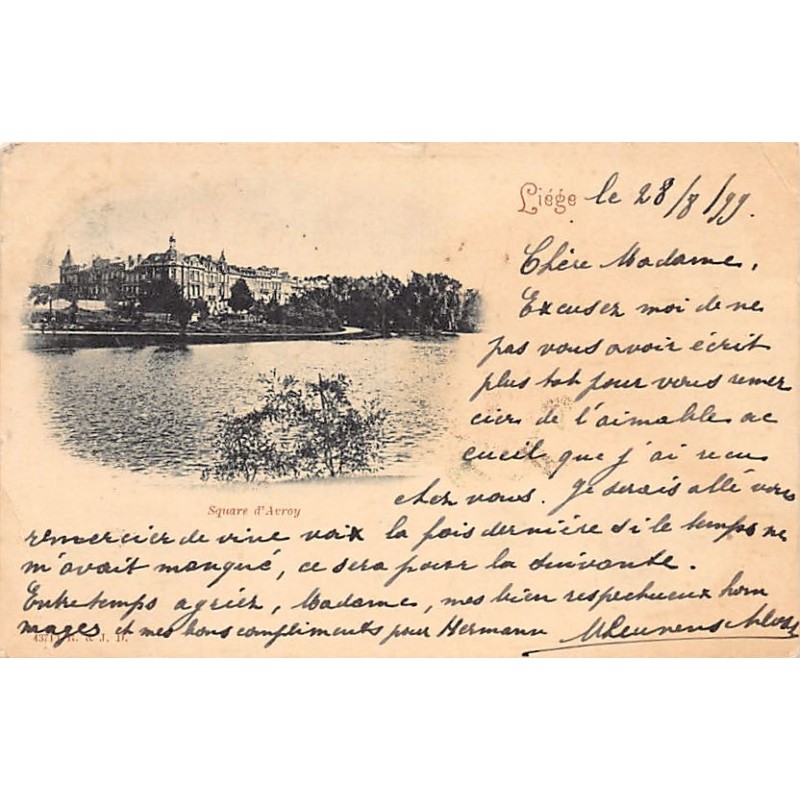 Liége le 28/8/99.
Chère Madame,
Excusez moi de ne
pas vous avoir écrit
plus tot pour vous remer
cier de l'aimable ac
cueil que j'ai recu
chez vous. Je serais allé vous
remercier de vive voix la fois dernière si le temps ne
m'avait manqué, ce sera pour la suivante.
Entretemps agréez, Madame, mes bien respectueux hom
mages et mes bons compliments pour Hermann
Square d'Avroy
& J. D.